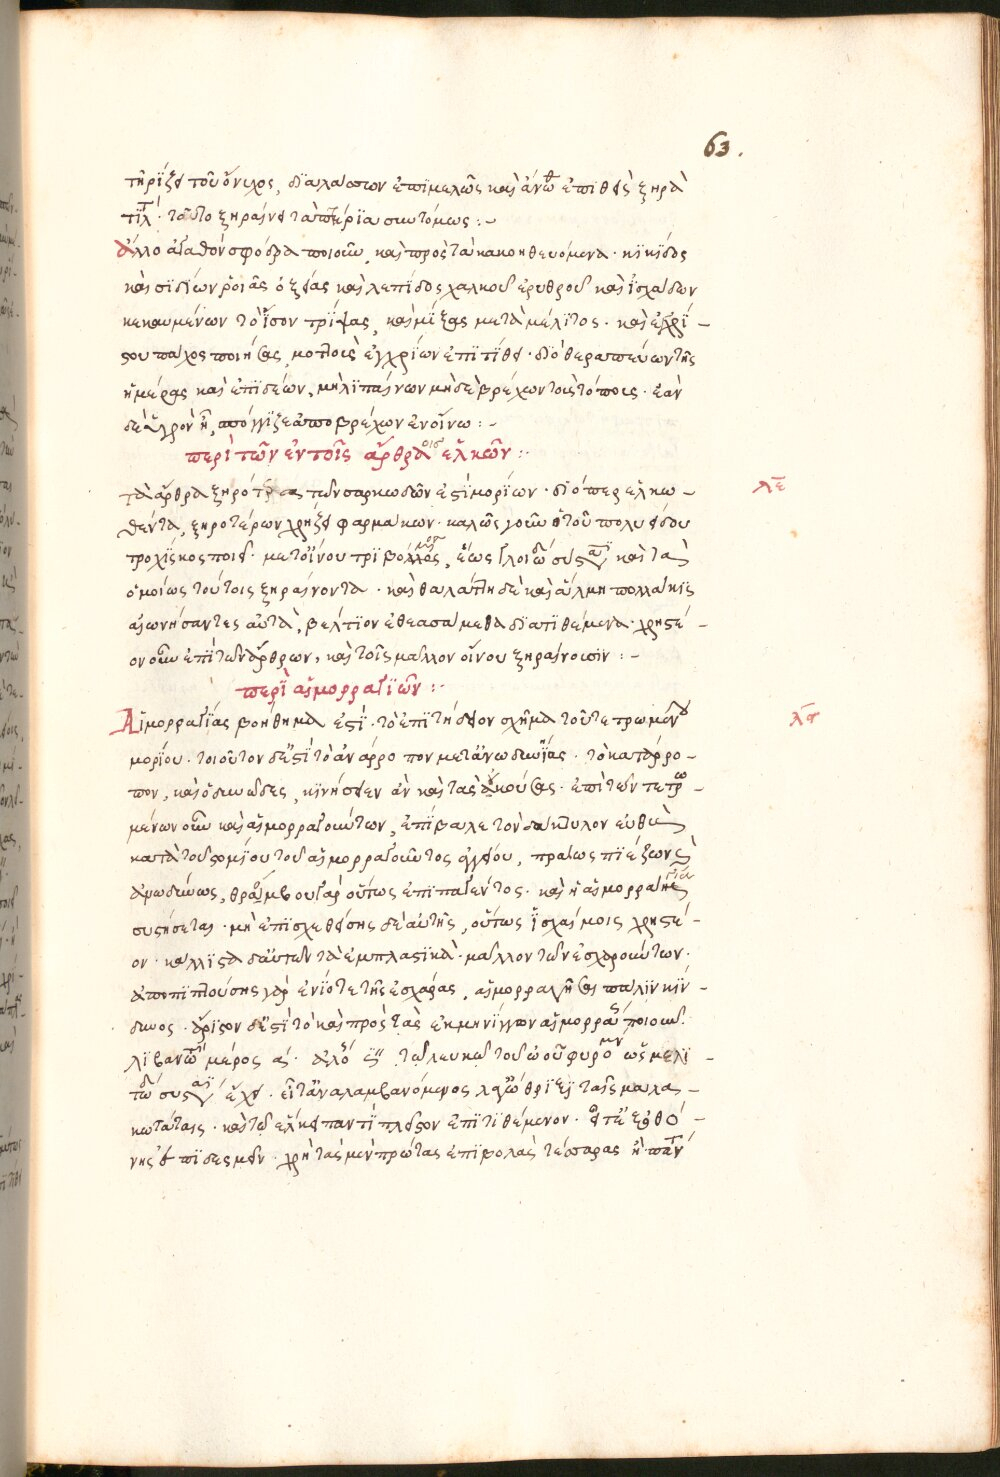 63.
τηρίζει τοῦ ὄνυχος, διαλαιστων ἐπιμελῶς καὶ ἄνωθεν ἐπιθεὶς ξηρὰ
τοῦτο ξηραίνει τὰ πτερύγια συντόμως :-
ἄλλο ἀγαθὸν σφόδρα ποιοῦν, καὶ πρὸς τὰ κακοηθευόμενα · κικίδος
καὶ σιδίων ῥοιᾶς ὀξείας καὶ λεπίδος χαλκοῦ ἐρυθροῦ καὶ ἰσχάδων
κεκαυμένων τὸ ἴσον τρίψας, καὶ μίξας μετὰ μέλιτος · καὶ ἐγχρί –
στου πάχος ποιήσας, μοτοῖς ἐγχρίων ἐπιτίθει · διὸ θεραπεύων τῆς
ἡμέρας καὶ ἐπιδέων, μὴ λιπαίνων μὴ δὲ βρέχων τοὺς τόπους · ἐὰν
δὲ ὑγρὸν ᾖ, σπόγγιζε ἀποβρέχων ἐν οἴνω :-
περὶ τῶν ἐν τοῖς ἄρθροις ἑλκῶν :-
τὰ ἄρθρα ξηρότερα τῶν σαρκωδῶν ἐστὶ μορίων · διόπερ ἑλκω –
θέντα, ξηροτέρων χρήζει φαρμάκων · καλῶς γοῦν ὁ τοῦ πολυείδου
τροχίσκος ποιεῖ · μετ οἴνου τριβόμενος, ἕως γλοιώδους συστάσεως καὶ τὰ
ὁμοίως τούτοις ξηραίνοντα · καὶ θαλάττη δὲ καὶ ἅλμη πολλάκις
αἰονήσαντες αὐτὰ, βέλτιον ἐθεασάμεθα διατιθέμενα · χρηστέ –
ον οὖν ἐπὶ τῶν ἄρθρων, καὶ τοῖς μᾶλλον οἴνου ξηραίνουσιν :-
λε
περὶ αἱμορραγιῶν :-
Αἱμορραγίας βοήθημα ἐστὶ · τὸ ἐπιτήδειον σχῆμα τοῦ τετρωμένου
λϛ
μορίου · τοιοῦτον δέ ἐστι τὸ ἀνάρροπον μετ ἀνωδυνίας · τὸ κατάρρο –
πον, καὶ ὀδυνῶδες, κινήσειεν ἂν καὶ τὰς ἀκούσας · ἐπὶ τῶν τετρω –
μένων οὖν καὶ αἱμορραγούντων, ἐπίβαλε τὸν δάκτυλον εὐθὺς
κατὰ τοῦ στομίου τοῦ αἱμορραγοῦντος ἀγγείου, πράως πιέζων
ἀνωδύνως, θρόμβου γὰρ οὕτως ἐπιπαγέντος · καὶ ἡ αἱμορραγία
συστήσεται · μὴ ἐπισχεθείσης δὲ αὐτῆς, οὕτως ἰσχαίμοις χρηστέ –
ον · κάλλιστα δ αὐτῶν τὰ ἐμπλαστικὰ · μᾶλλον τῶν ἐσχαρούντων ·
ἀποπιπτούσης γὰρ ἐνίοτε τῆς ἐσχάρας, αἱμορραγῆσαι πάλιν κίν –
δυνος · ἄριστον δέ ἐστι τὸ καὶ πρὸς τὰς ἐκ μηνίγγων αἱμορραγίας ποιοῦν ·
λιβανωτοῦ μέρος α · ἀλόης τῶ λευκῶ τοῦ ὠοῦ φυρόμενον ὡς μελι –
τώδη σύστασιν ἔχειν · εἶτ ἀναλαμβανόμενος λαγώου θριξὶ ταῖς μαλα –
κωτάταις · καὶ τῶ ἕλκει παντὶ πλεῖστον ἐπιτιθέμενον · εἶτ ἔξωθεν ὀθό –
νης ἐπιδεσμεῖν · χρὴ τὰς μὲν πρώτας ἐπιβολὰς τέσσαρας ἢ πέντε